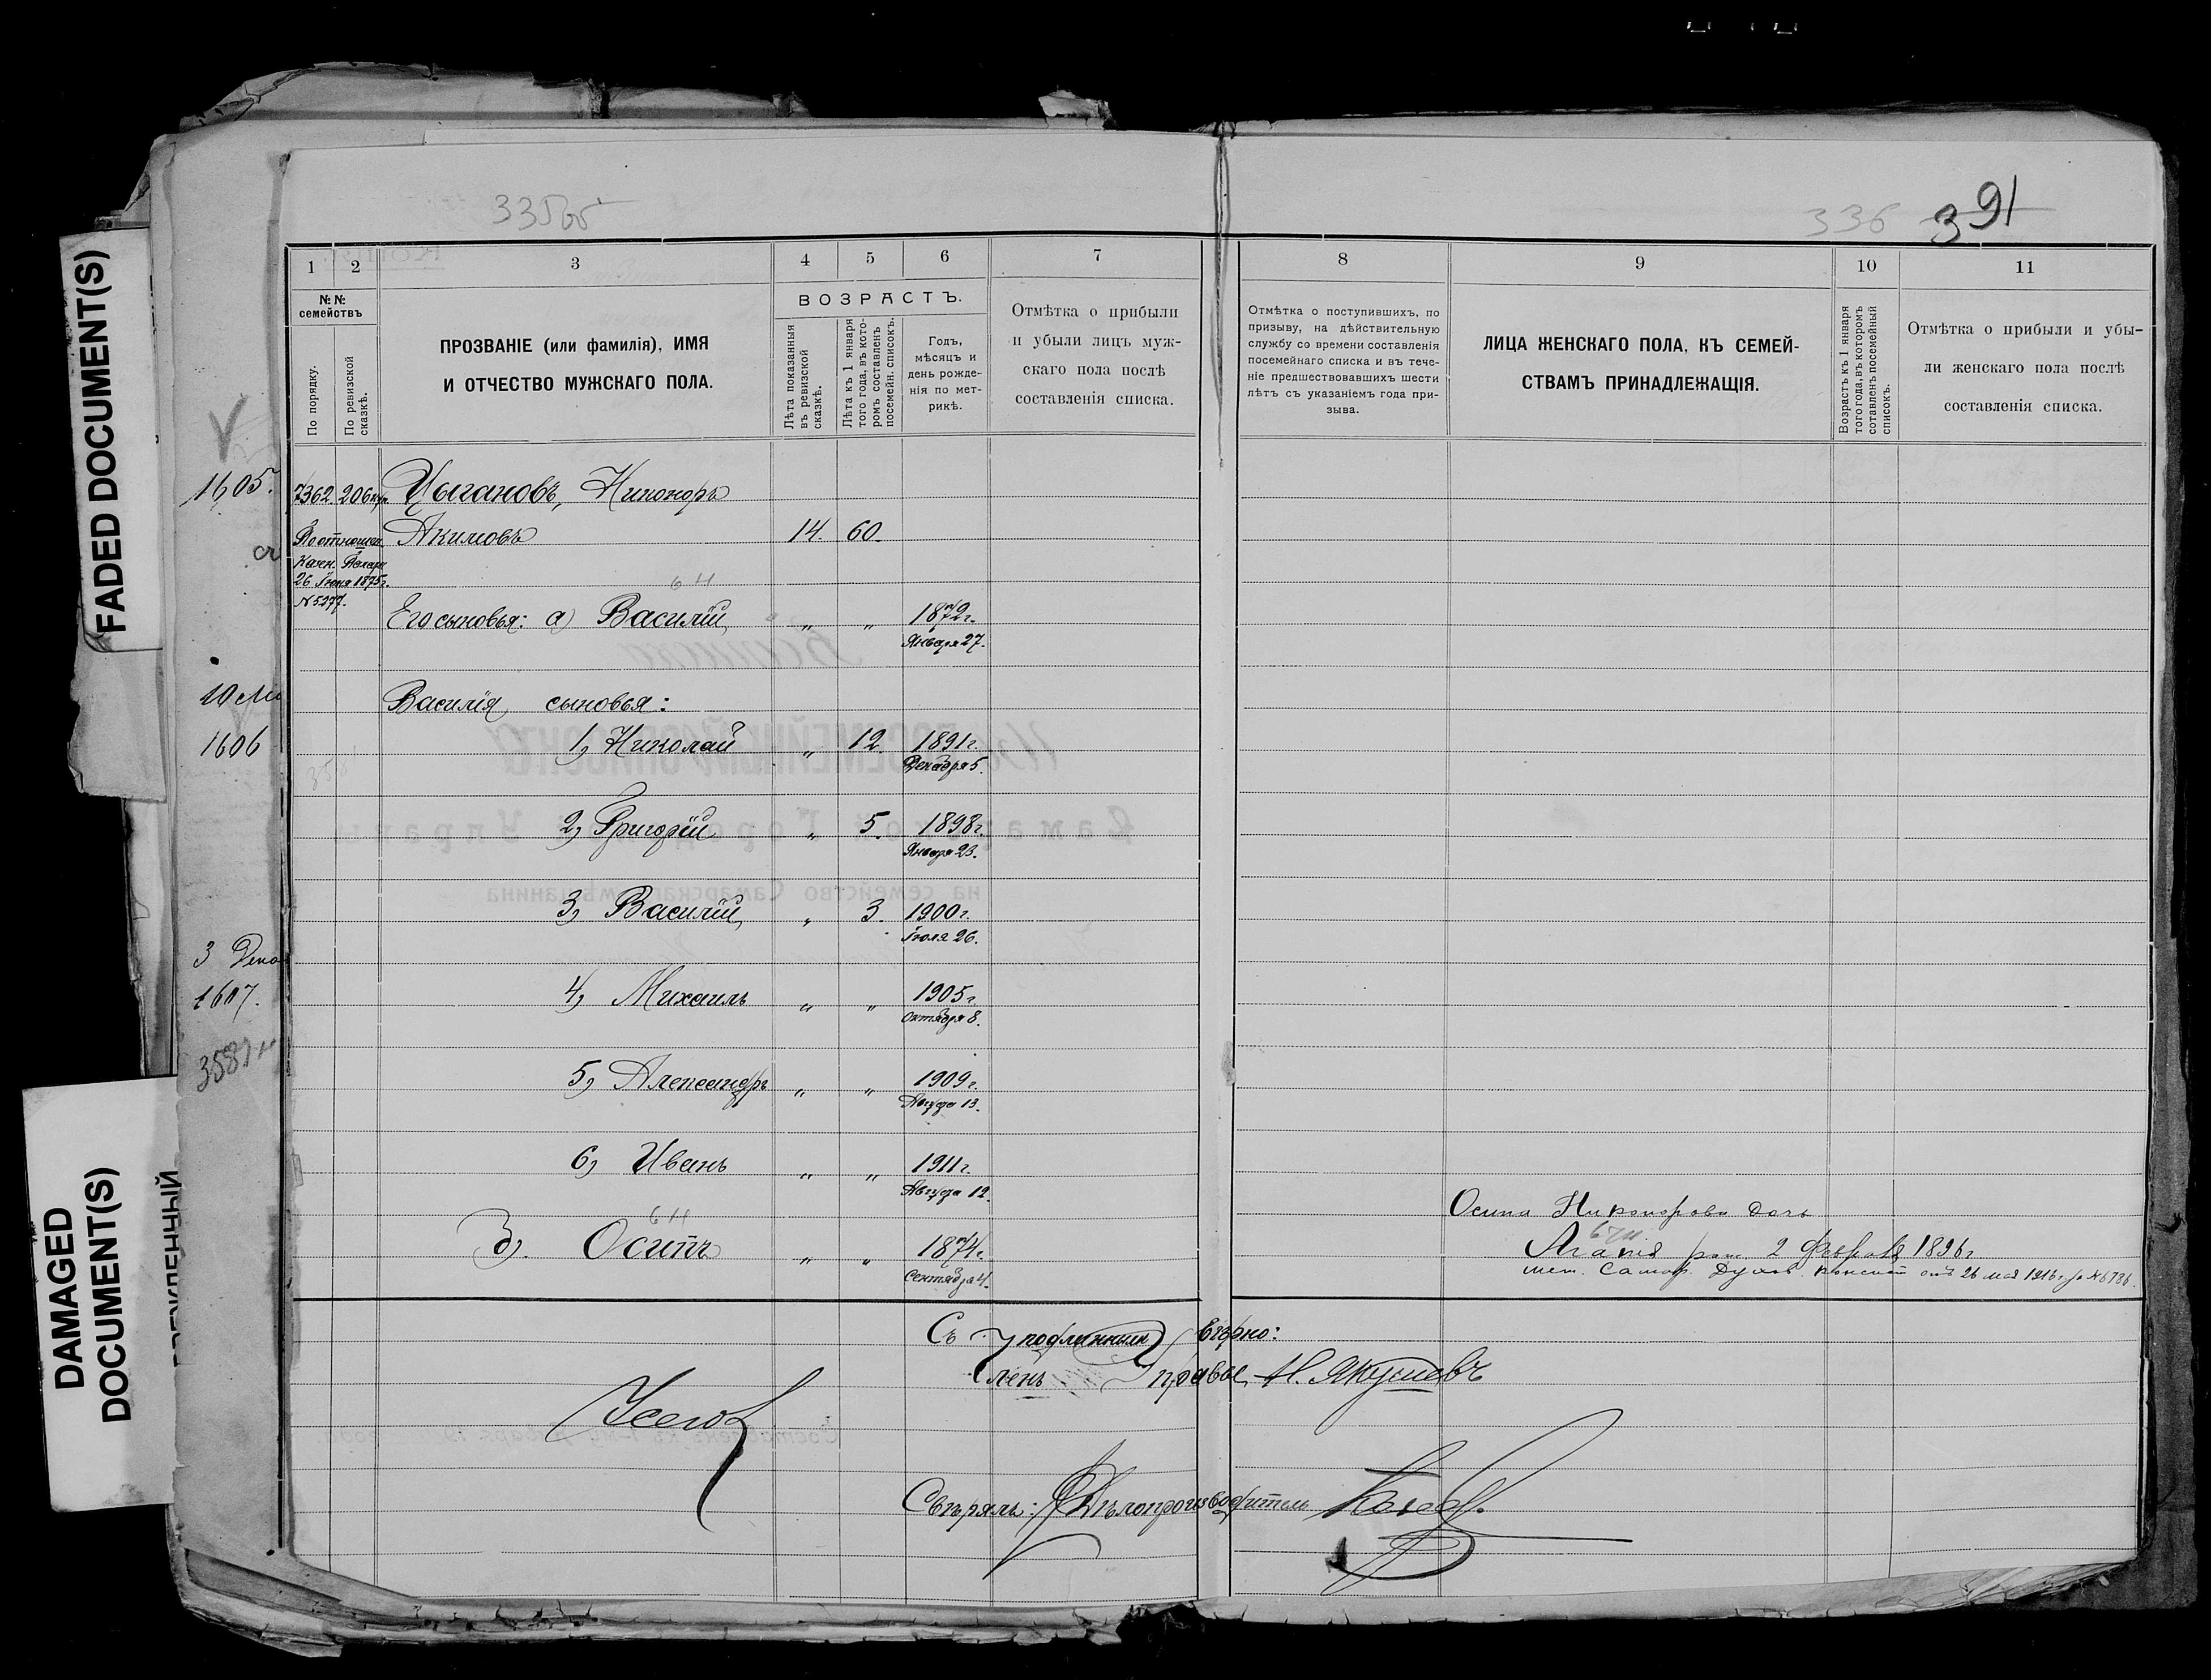 335об
336 391
FADED DOCUMENT(S)
DAMAGED
DOCUMENT(S)
1605.
1606
3
1607.
1 2 3 4 5 6 7
№ №
семействъ
По порядку.
По ревизской
сказкѣ.
ПРОЗВАНІЕ (или фамилія), ИМЯ
И ОТЧЕСТВО МУЖСКАГО ПОЛА.
ВОЗРАСТЪ.
Лѣта показанныя
въ ревизской
сказкѣ.
Лѣта къ 1 января
того года, въ кото-
ромъ составленъ
посемейн. списокъ.
Годъ,
мѣсяцъ и
день рожде-
нія по мет-
рикѣ.
Отмѣтка о прибыли
и убыли лицъ муж-
скаго пола послѣ
составленія списка.
7362 206 Цыгановъ, Никоноръ
Акимовъ 14. 60.
26 Іюня 1875г.
№5277.
Его сыновья: а) Василій „ „ 1872г.
Января 27.
Василія сыновья:
1, Николай „ 12 1891г.
Декабря 5.
2, Григорій „ 5. 1898г.
Января 23.
3, Василій „ 3. 1900г.
Іюля 26.
4, Михаилъ „ „ 1905г.
Октября 8.
5, Александръ „ „ 1909г.
Августа 13.
6, Иванъ „ „ 1911г.
Августа 12.
Осипъ „ „ 1874г.
Сентября 4.
8 9 10 11
Отмѣтка о поступившихъ, по
призыву, на дѣйствительную
службу со времени составленія
посемейнаго списка и въ тече-
ніе предшествовавшихъ шести
лѣтъ съ указаніемъ года при-
зыва.
ЛИЦА ЖЕНСКАГО ПОЛА, КЪ СЕМЕЙ-
СТВАМЪ ПРИНАДЛЕЖАЩІЯ.
Возрастъ къ 1 января
того года, въ которомъ
составленъ посемейный
списокъ.
Отмѣтка о прибыли и убы-
ли женскаго пола послѣ
составленія списка.
Осипа Никонорова дочь
Агапія рож. 2 Февраля 1896г
мет. Самар. Духов. Консист отъ 26 мая 1916г за №6786
Съ подлиннымъ вѣрно:
Членъ Управы, Н. Якушевъ
Свѣрялъ: Дѣлопроизводитель